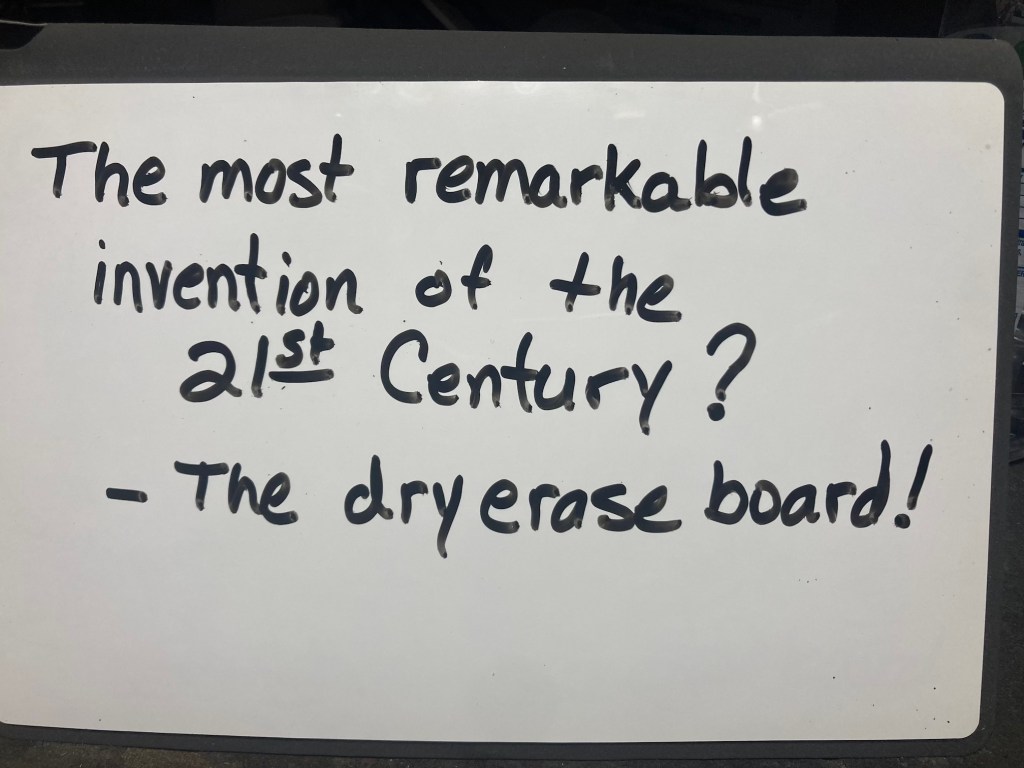 The most remarkable
invention of the
21st Century?
- The dry erase board!